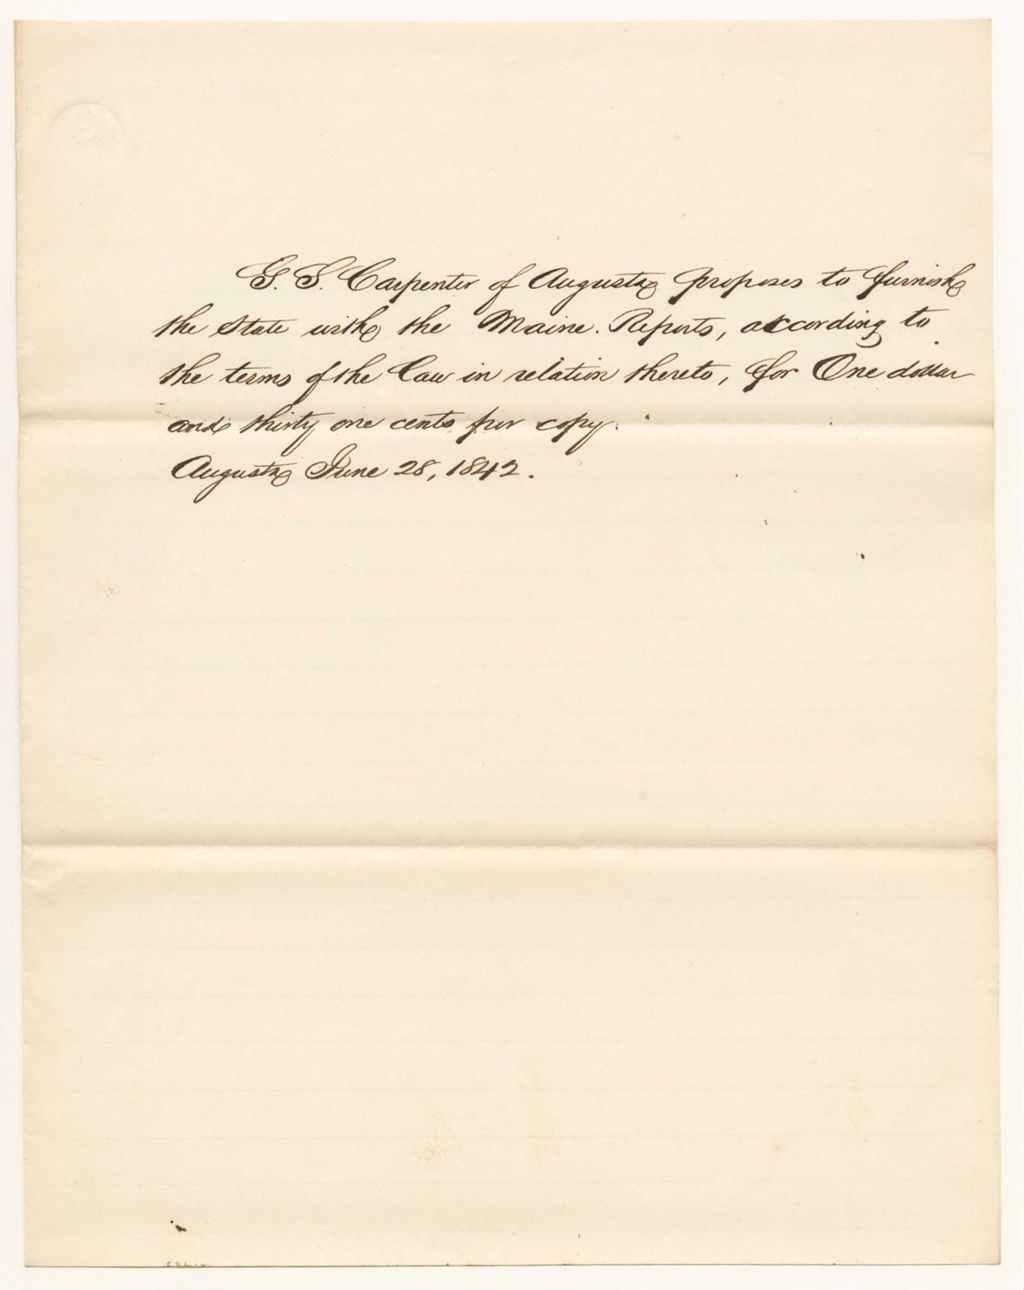 G. S. Carpenter of Augusta proposes to furnish
the State with the Maine Reports, according to
the terms of the Law in relation thereto, for One dollar
and thirty one cents per copy.
Augusta June 28, 1842.